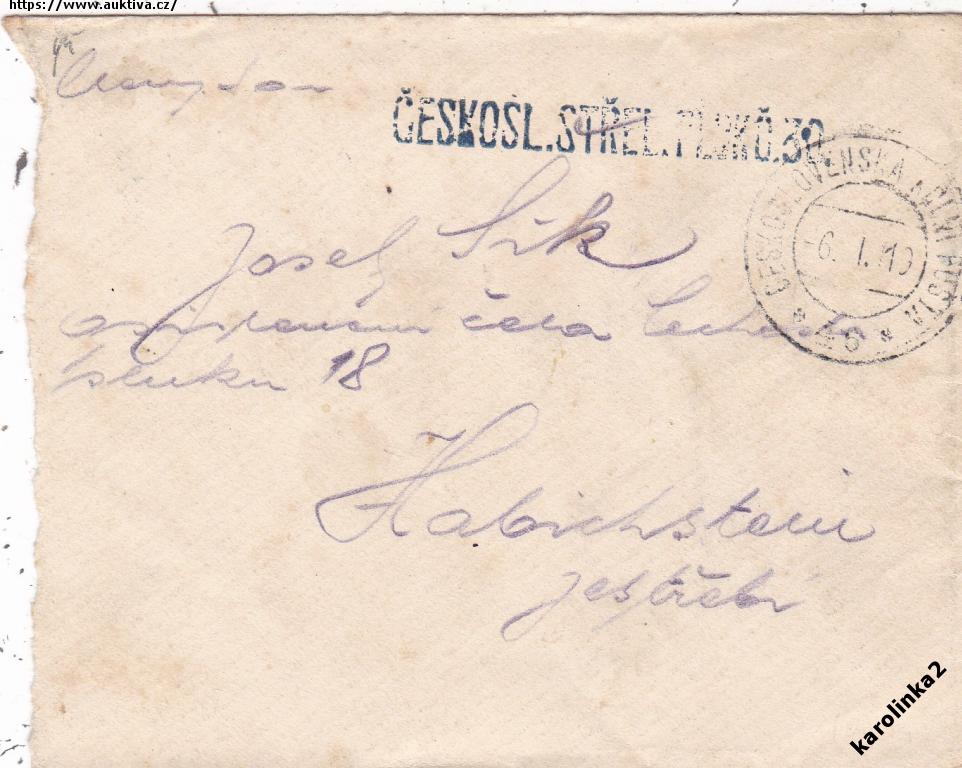 https://www.auktiva.cz/
ČESKOSL.STŘEL.PLUK Č.30.
ČESKOSLOVENSKÁ POLNÍ POŠTA
-6. I. 19
* 46 *
Josef Sík
čeho
pluku 18
Habichstein
Jestřebí
karolinka2